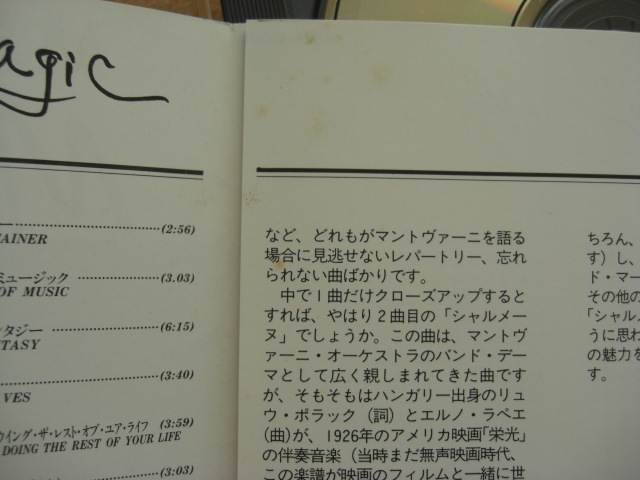 agic
(2:56)
AINER
ミュージック (3.03)
OF MUSIC
タジー (6:15)
TASY
(3:40)
VES
ウイング・ザ・レスト・オブ・ユア・ライフ (3:59)
DOING THE REST OF YOUR LIFE
(3:03)
など、どれもがマントヴァーニを語る
場合に見逃せないレパートリー、忘れ
られない曲ばかりです。
中で1曲だけクローズアップすると
すれば、やはり2曲目の「シャルメー
ヌ」でしょうか。この曲は、マントヴ
ァーニ・オーケストラのバンド・テー
マとして広く親しまれてきた曲です
が、そもそもはハンガリー出身のリュ
ウ・ポラック（詞）とエルノ・ラペエ
(曲)が、1926年のアメリカ映画「栄光」
の伴奏音楽（当時まだ無声映画時代、
この楽譜が映画のフィルムと一緒に世
ちろん、
す）し、
ド・マー
その他の
「シャル
うに思わ
の魅力を
す。